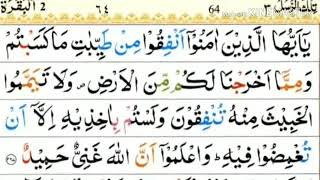 البقرة ٢ ٦٤ 64 تلك الرسل ٣
يٰۤاَيُّهَا الَّذِيْنَ اٰمَنُوْۤا اَنْفِقُوْا مِنْ طَيِّبٰتِ مَا كَسَبْتُمْ
وَمِمَّاۤ اَخْرَجْنَا لَكُمْ مِّنَ الْاَرْضِ ۪ وَلَا تَيَمَّمُوا
الْخَبِيْثَ مِنْهُ تُنْفِقُوْنَ وَلَسْتُمْ بِاٰخِذِيْهِ اِلَّاۤ اَنْ
تُغْمِضُوْا فِيْهِ ؕ وَاعْلَمُوْۤا اَنَّ اللّٰهَ غَنِيٌّ حَمِيْدٌ ٢٦٧